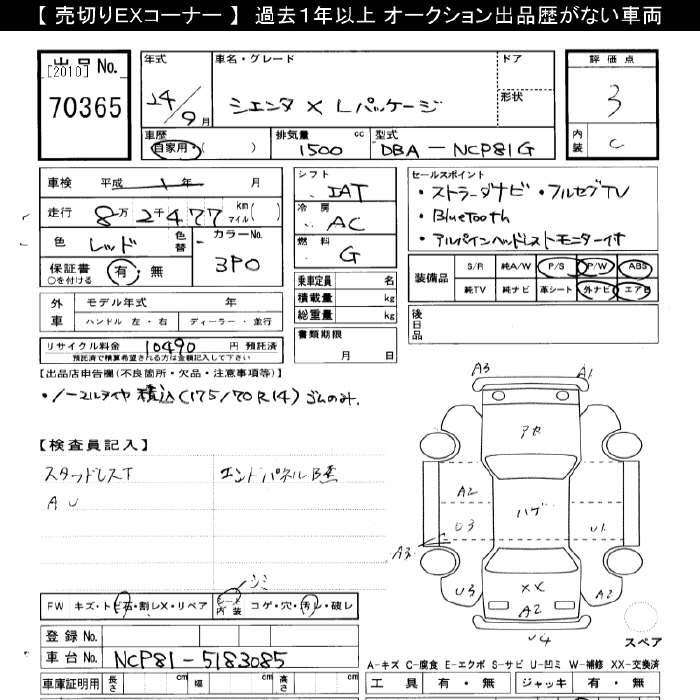 【 売切りEXコーナー 】 過去1年以上 オークション出品歴がない車両
出品 No.
[2010]
70365
年式
24/9月
車名・グレード
シエンタ X Lパッケージ
ドア
形状
評価点
3
内装
C
車歴
自家用・( )
排気量 cc
1500
型式
DBA-NCP81G
車検 平成 年 月
走行 8万2千477 km マイル( )
色 レッド
色替
カラーNo.
3P0
保証書 ○を付ける
有・無
外車
モデル年式 年
ハンドル 左・右
ディーラー・並行
リサイクル料金 10490 円 預託済
預託済で積算希望される方は金額記入して下さい
シフト
IAT
冷房
AC
燃料
G
乗車定員 名
積載量 kg
総重量 kg
書類期限
月 日
セールスポイント
・ストラーダナビ・フルセグTV
・Bluetooth
・アルパインヘッドレストモニター付
装備品
S/R 純A/W P/S P/W ABS
純TV 純ナビ 革シート 外ナビ エアB
後日品
【出品店申告欄(不良箇所・欠品・注意事項等)】
・ノーマルタイヤ積込(175/70R14)ゴムのみ.
【検査員記入】
スタッドレスT
AU
エンドパネルB歪
シミ
A3
A1
アセ
A2
ハゲ
U3
U1
A3
U3
XX
A2
A2
U4
スペア
FW キズ・トビ石・割レX・リペア
シート内装 コゲ・穴・汚レ・破レ
登録 No.
車台 No. NCP81-5183085
車庫証明用
長さ cm
幅 cm
高さ cm
A-キズ C-腐食 E-エクボ S-サビ U-凹ミ W-補修 XX-交換済
工具 有・無
ジャッキ 有・無